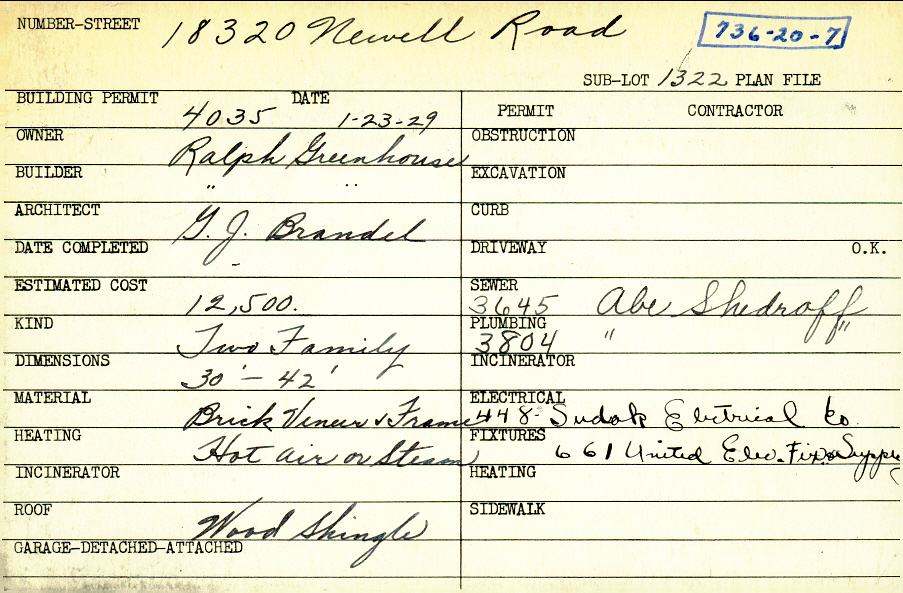 NUMBER-STREET 18320 Newell Road 736-20-7
SUB-LOT 1322 PLAN FILE
BUILDING PERMIT 4035 DATE 1-23-29
PERMIT CONTRACTOR
OWNER Ralph Greenhouse
OBSTRUCTION
BUILDER " "
EXCAVATION
ARCHITECT G. J. Brandel
CURB
DATE COMPLETED -
DRIVEWAY O.K.
ESTIMATED COST 12,500.
SEWER 3645 Abe Shedroff
KIND Two Family
PLUMBING 3804 " "
DIMENSIONS 30' - 42'
INCINERATOR
MATERIAL Brick Veneer & Frame
ELECTRICAL 448- Electrical Co.
HEATING Hot air or Steam
FIXTURES 661 United Elec. Fix. & Supply
INCINERATOR
HEATING
ROOF Wood Shingle
SIDEWALK
GARAGE-DETACHED-ATTACHED